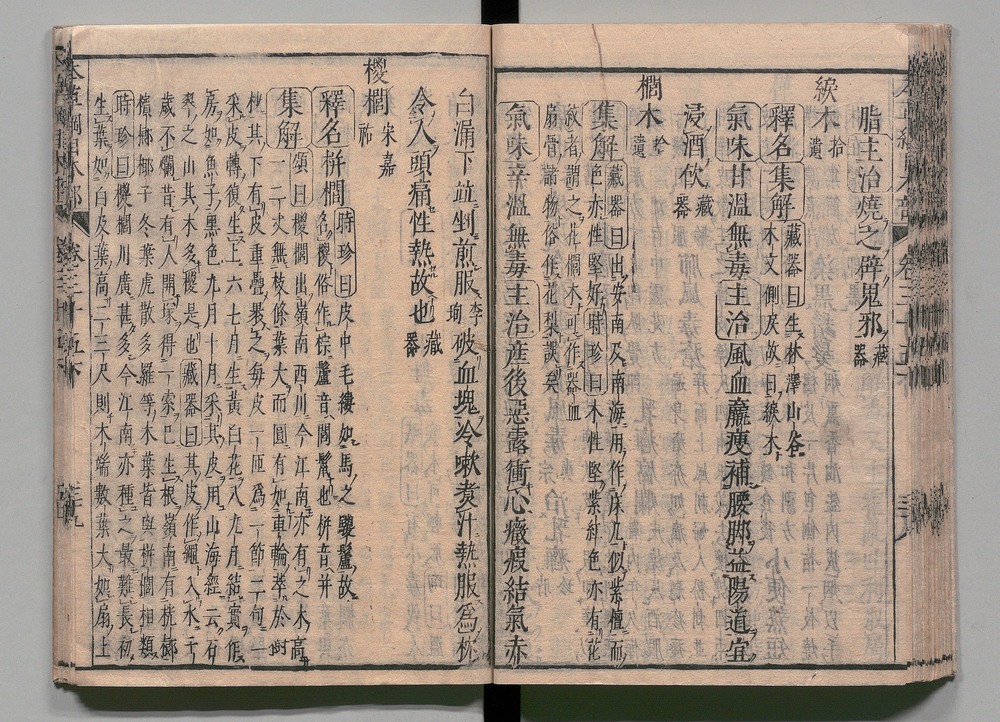 脂主治燒之辟鬼邪藏器
緱木拾遺
釋名集解藏器曰生林澤山谷木文側戾故曰緱木
氣味甘溫無毒主治風血羸瘦補腰脚益陽道宜
浸酒飲藏器
櫚木拾遺
集解藏器曰出安南及南海用作床几似紫檀而色赤性堅好時珍曰木性堅紫紅色亦有花
紋者謂之花櫚木可作器皿扇骨諸物俗作花梨誤矣
氣味辛溫無毒主治産後惡露衝心癥瘕結氣赤
白漏下並剉煎服李珣破血塊冷嗽煮汁熱服爲枕
令人頭痛性熱故也藏器
椶櫚宋嘉祐
釋名栟櫚時珍曰皮中毛縷如馬之騣鬣故名椶俗作棕鬣音閭鬣也栟音并
集解頌曰椶櫚出嶺南西川今江南亦有之木高一二丈無枝條葉大而圓有如車輪萃於樹
杪其下有皮重疊裹之每皮一匝爲一節二旬一
采皮轉復生上六七月生黃白花八九月結實作
房如魚子黑色九月十月采其皮用山海經云石
翠之山其木多椶是也藏器曰其皮作繩入水千
歲不爛昔有人開塚得一索已生根嶺南有桄榔
檳榔椰子冬葉虎散多羅等木葉皆與栟櫚相類
時珍曰椶櫚川廣甚多今江南亦種之最難長初
生葉如白及葉高二三尺則木端數葉大如扇上